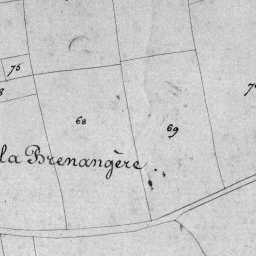 75
68
69
la Brenangère